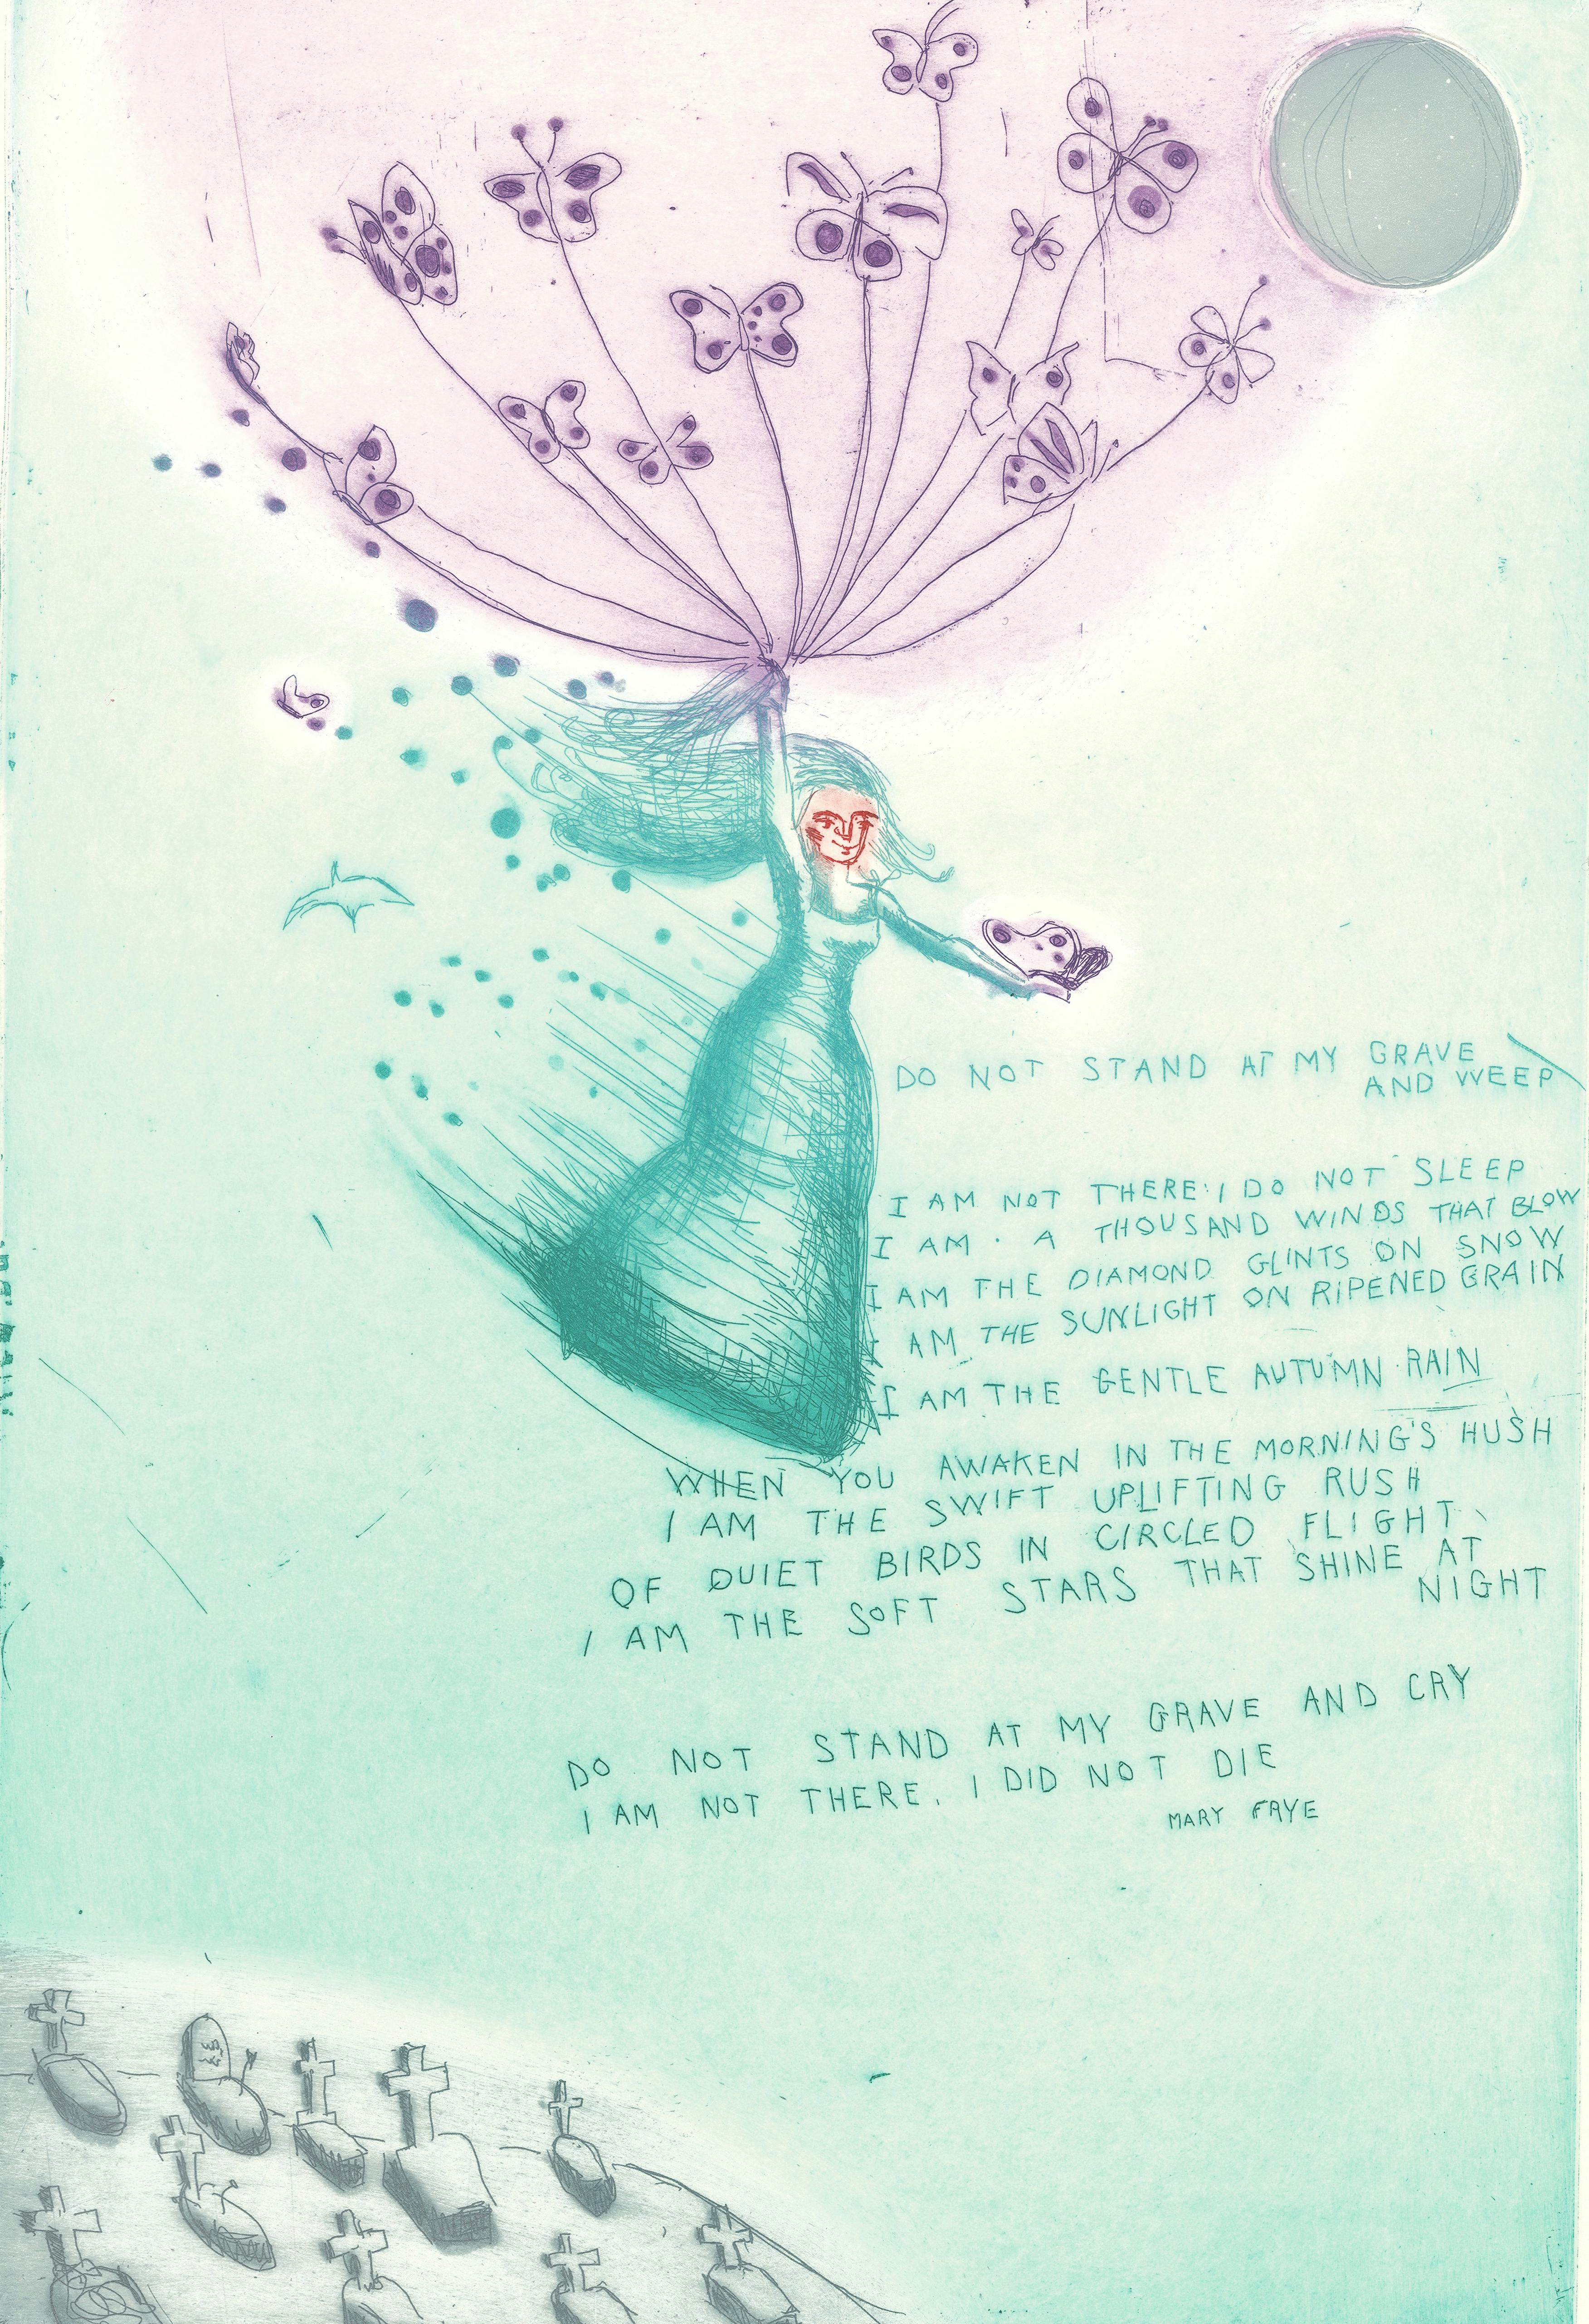 DO NOT STAND AT MY GRAVE
AND WEEP
I AM NOT THERE. I DO NOT SLEEP
I AM . A THOUSAND WINDS THAT BLOW
I AM THE DIAMOND GLINTS ON SNOW
I AM THE SUNLIGHT ON RIPENED GRAIN
I AM THE GENTLE AUTUMN RAIN
WHEN YOU AWAKEN IN THE MORNING'S HUSH
I AM THE SWIFT UPLIFTING RUSH
OF QUIET BIRDS IN CIRCLED FLIGHT
I AM THE SOFT STARS THAT SHINE AT
NIGHT
DO NOT STAND AT MY GRAVE AND CRY
I AM NOT THERE. I DID NOT DIE
MARY FRYE